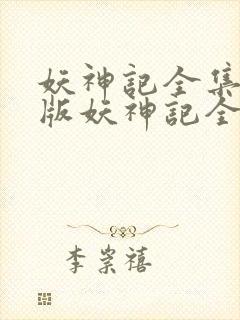 妖神記全集
版妖神記全
李崇禧